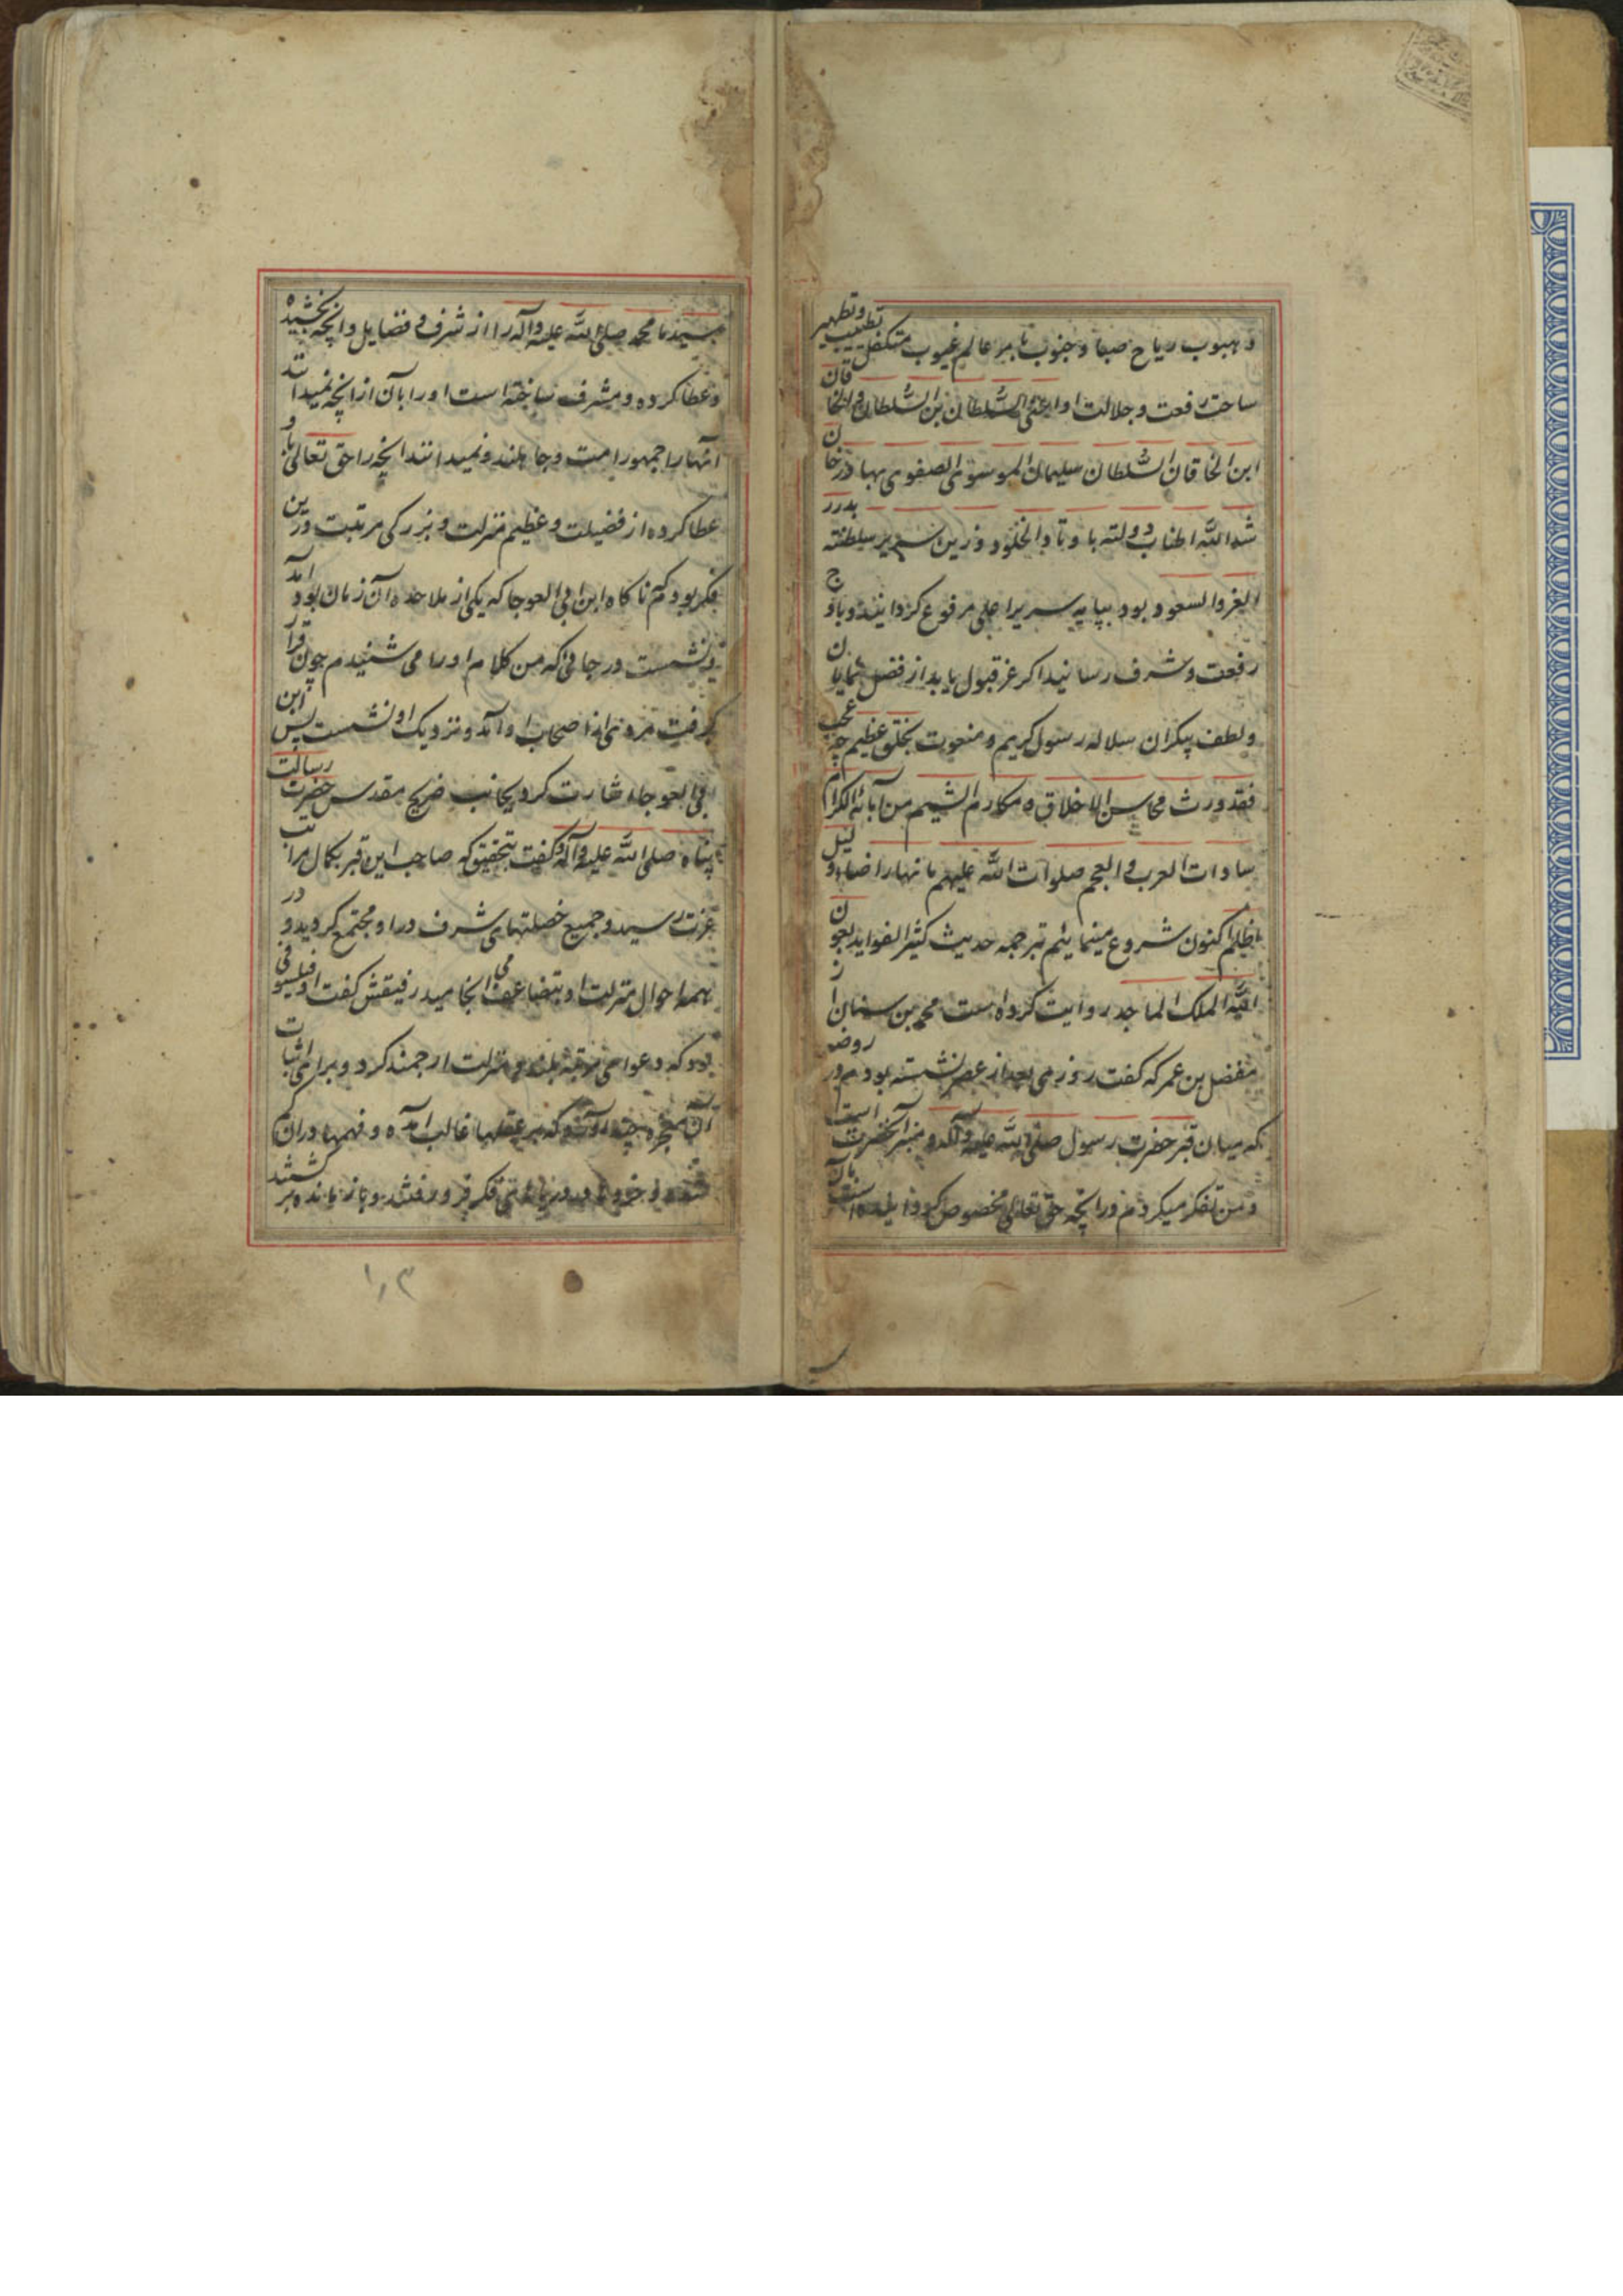 و هبوب ریاح صبا و جنوب بامر عالم غیوب متکفل تطییب و تطهیر
ساحت رفعت و جلالت او اعنی السلطان بن السلطان و الخاقان
ابن الخاقان السلطان سلیمان الموسوی الصفوی بهادر خان
شد الله اطناب دولته باوتاد الخلود و زین سریر سلطنته بدرر
الغر و السعود بود بپایه سریر اعلی مرفوع گردانیند و باوج
رفعت و شرف رسانید اگر عز قبول یابد از فضل نمایان
و لطف بیکران سلاله رسول کریم و منعوت بخلق عظیم چه عجب
فقد ورث محاسن الاخلاق و مکارم الشیم من آبائه الکرام
سادات العرب و العجم صلوات الله علیهم ما نهار اضاء و لیل
اظلم اکنون شروع مینمائیم بترجمه حدیث کثیر الفواید بعون
الله الملک الماجد روایت کرده است محمد بن سنان از
مفضل بن عمر که گفت روزی بعد از عصر نشسته بودم در روضه
که میان قبر حضرت رسول صلی الله علیه و آله و منبر آنحضرت است
و من تفکر میکردم در آنچه حق تعالی مخصوص گردانیده است بآن
سیدنا محمد صلی الله علیه و آله را از شرف و فضایل و آنچه بخشیده
و عطا کرده و مشرف ساخته است او را بآن از آنچه نمیدانند
آنها را جمهور امت و جاهلند و نمیدانند آنچه را حق تعالی باو
عطا کرده از فضیلت و عظیم منزلت و بزرکی مرتبت درین
فکر بودم که ناگاه ابن ابی العوجا که یکی از ملاحده آن زمان بود آمد
و نشست در جائی که من کلام او را می شنیدم چون قرار
گرفت مردی از اصحاب او آمد و نزدیک او نشست پس ابن
ابی العوجا اشارت کرد بجانب ضریح مقدس حضرت رسالت
پناه صلی الله علیه و آله و گفت بتحقیق که صاحب این قبر بکمال مراتب
عزت رسید و جمیع خصلتهای شرف در او مجتمع گردید و در
همه احوال منزلت او بتضاعف می انجامید رفیقش گفت او فیلسوفی
بود که دعوای مرتبه بلند و منزلت ارجمند کرد و برای اثبات
آن معجزه چند آورد که بر عقلها غالب آمده و فهمها در آن گم